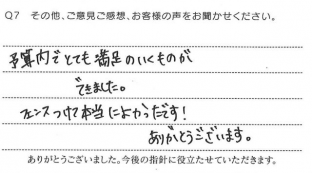 Q7 その他、ご意見ご感想、お客様の声をお聞かせください。
予算内でとても満足のいくものが
できました。
フェンスつけて本当によかったです！
ありがとうございます。
ありがとうございました。今後の指針に役立たせていただきます。